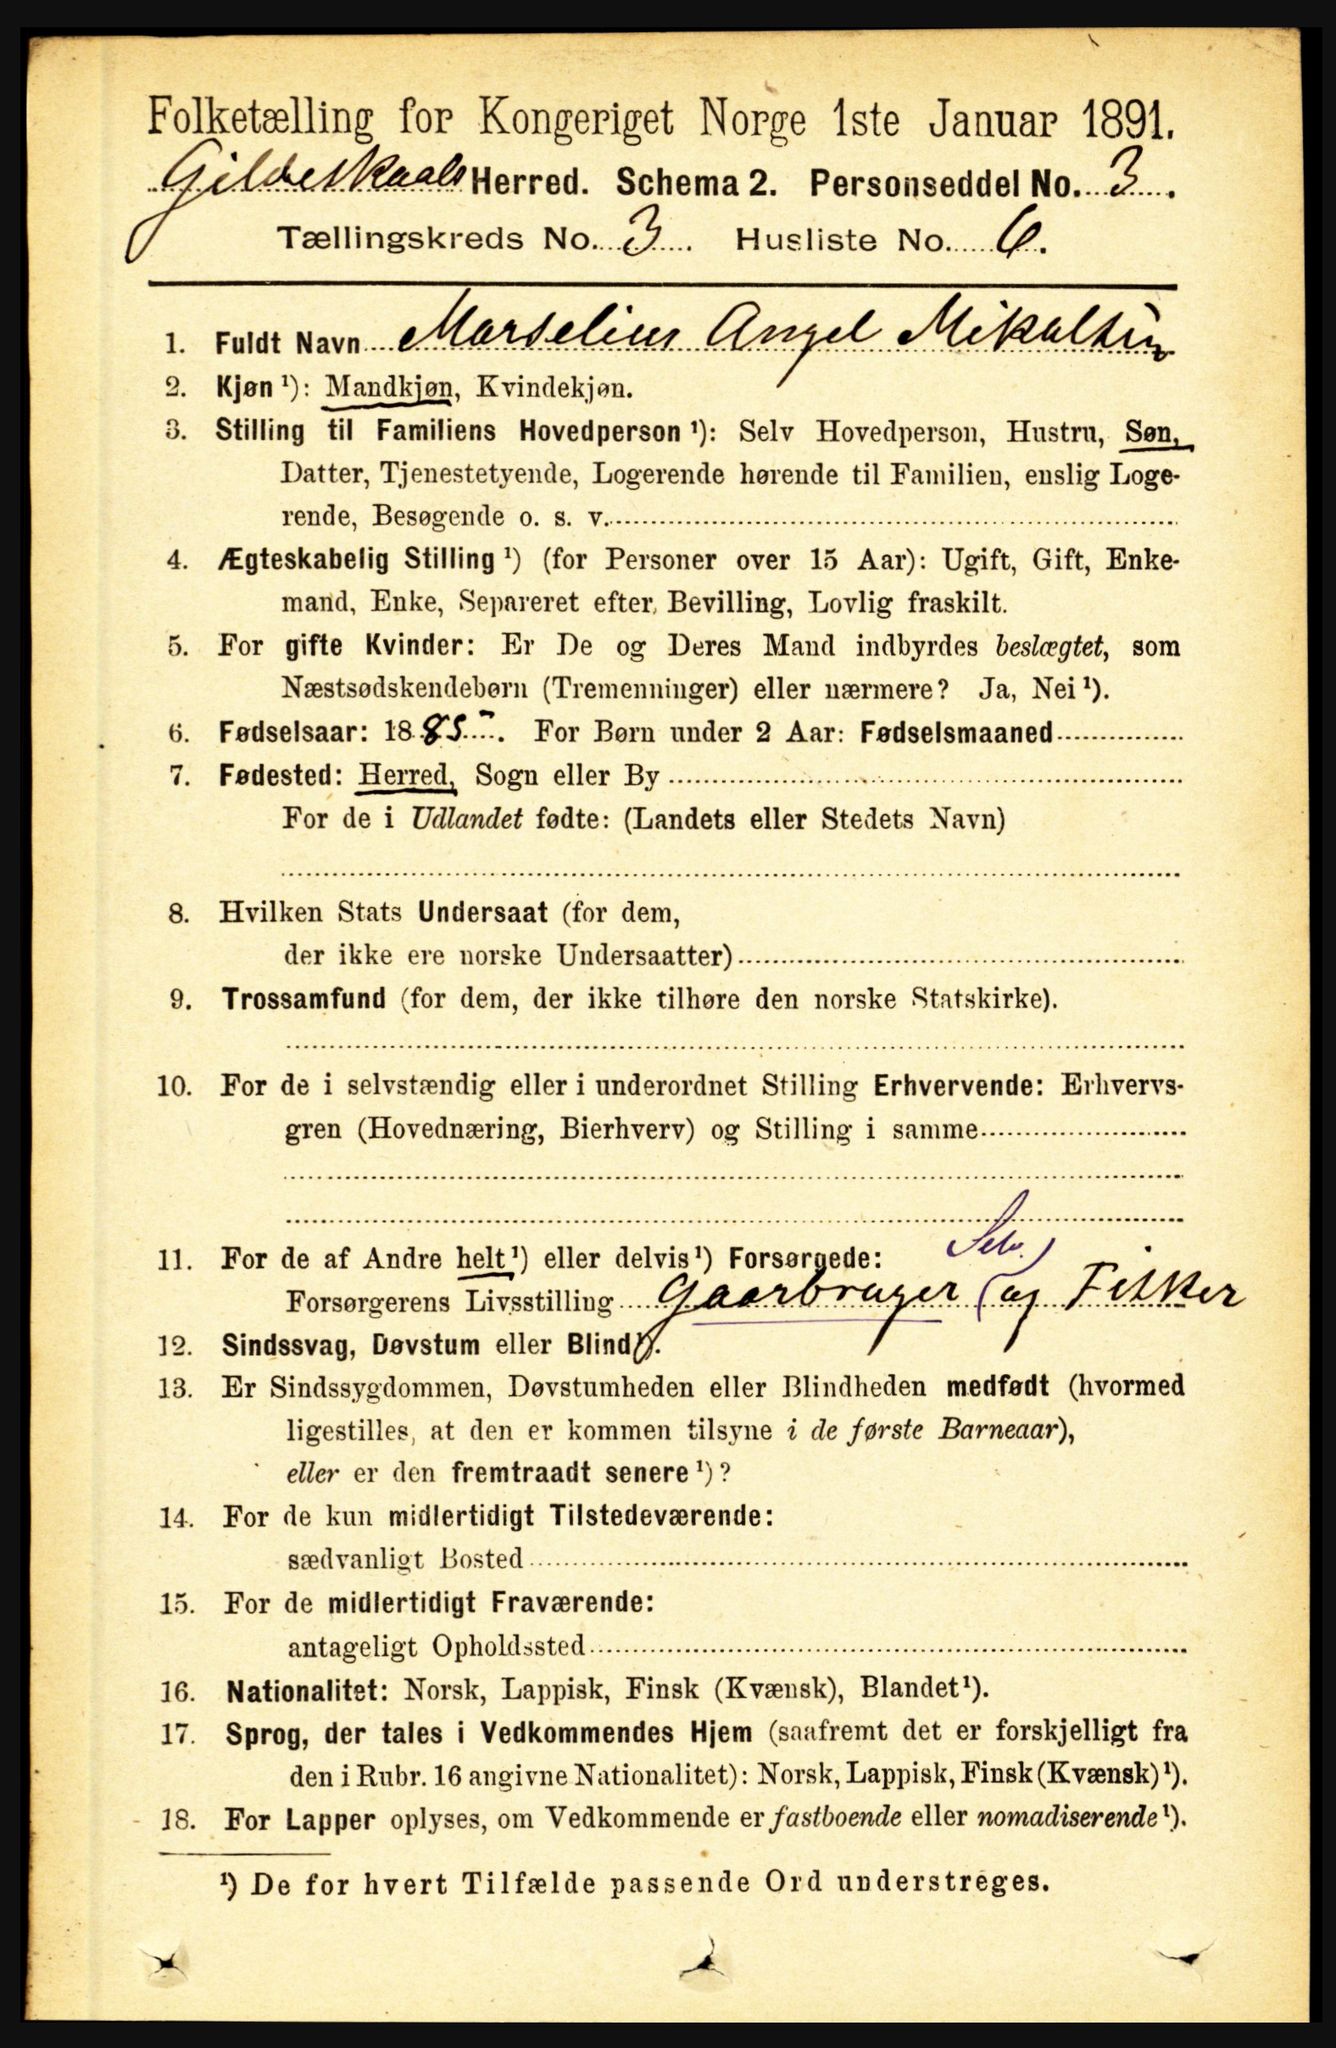 Folketælling for Kongeriget Norge 1ste Januar 1891.
Gildeskaals Herred. Schema 2. Personseddel No. 3.
Tællingskreds No. 3. Husliste No. 6.
1. Fuldt Navn Marselius Angel Mikalsen
2. Kjøn¹): Mandkjøn, Kvindekjøn.
3. Stilling til Familiens Hovedperson¹): Selv Hovedperson, Hustru, Søn,
Datter, Tjenestetyende, Logerende hørende til Familien, enslig Loge-
rende, Besøgende o. s. v.
4. Ægteskabelig Stilling¹) (for Personer over 15 Aar): Ugift, Gift, Enke-
mand, Enke, Separeret efter Bevilling, Lovlig fraskilt.
5. For gifte Kvinder: Er De og Deres Mand indbyrdes beslægtet, som
Næstsødskendebørn (Tremenninger) eller nærmere? Ja, Nei¹).
6. Fødselsaar: 1885. For Børn under 2 Aar: Fødselsmaaned
7. Fødested: Herred, Sogn eller By
For de i Udlandet fødte: (Landets eller Stedets Navn)
8. Hvilken Stats Undersaat (for dem,
der ikke ere norske Undersaatter)
9. Trossamfund (for dem, der ikke tilhøre den norske Statskirke).
10. For de i selvstændig eller i underordnet Stilling Erhvervende: Erhvervs-
gren (Hovednæring, Bierhverv) og Stilling i samme
11. For de af Andre helt¹) eller delvis¹) Forsørgede: Selv.
Forsørgerens Livsstilling Gaarbruger (og Fisker
12. Sindssvag, Døvstum eller Blind¹).
13. Er Sindssygdommen, Døvstumheden eller Blindheden medfødt (hvormed
ligestilles, at den er kommen tilsyne i de første Barneaar),
eller er den fremtraadt senere¹)?
14. For de kun midlertidigt Tilstedeværende:
sædvanligt Bosted
15. For de midlertidigt Fraværende:
antageligt Opholdssted
16. Nationalitet: Norsk, Lappisk, Finsk (Kvænsk), Blandet¹).
17. Sprog, der tales i Vedkommendes Hjem (saafremt det er forskjelligt fra
den i Rubr. 16 angivne Nationalitet): Norsk, Lappisk, Finsk (Kvænsk)¹).
18. For Lapper oplyses, om Vedkommende er fastboende eller nomadiserende¹).
¹) De for hvert Tilfælde passende Ord understreges.